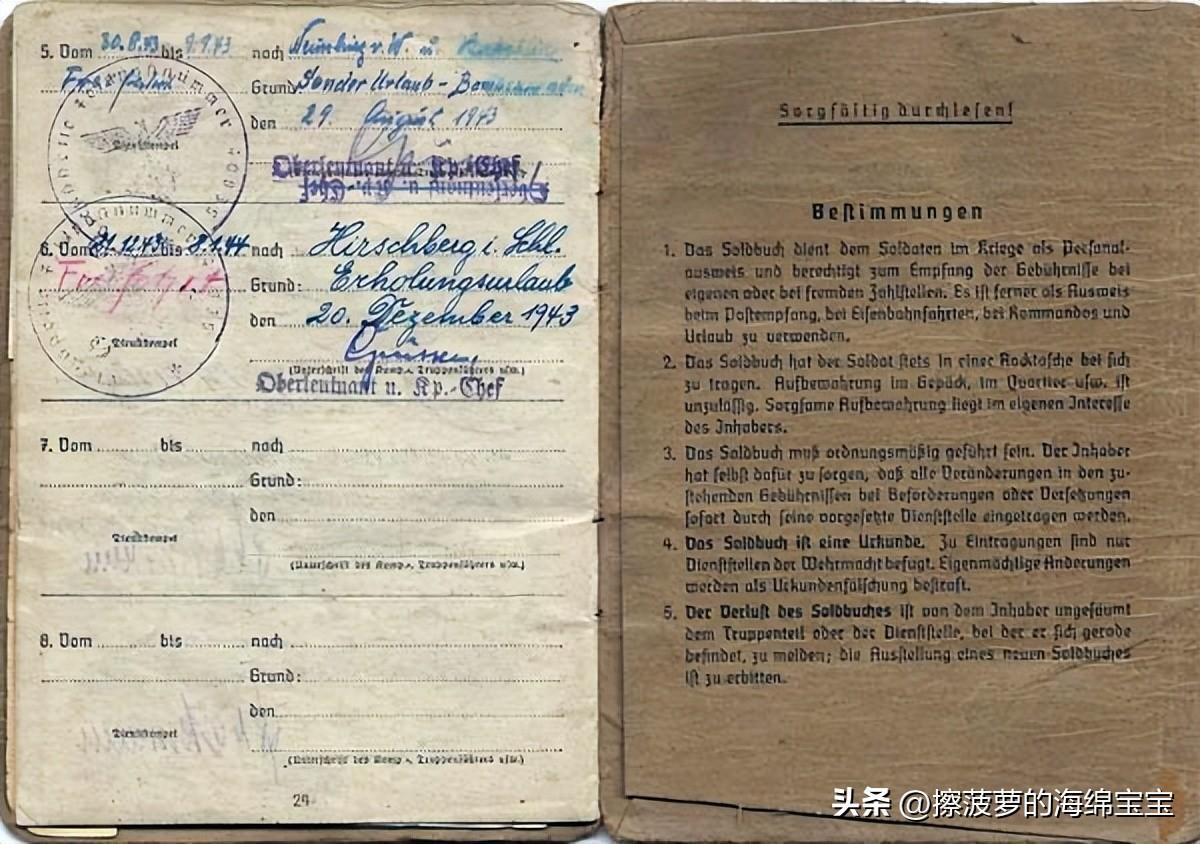 5. Vom 30.8.43 bis 9.9.43 nach
Grund: Sonder Urlaub -
den 29. August 1943
Dienststempel
Oberleutnant u. Kp.-Chef
6. Vom 21.12.43 bis 8.1.44 nach Hirschberg i. Schl.
Grund: Erholungsurlaub
den 20. Dezember 1943
Dienststempel
(Unterschrift des Komp.-, Truppenführers usw.)
Oberleutnant u. Kp.-Chef
7. Vom bis nach
Grund:
den
Dienststempel
(Unterschrift des Komp.-, Truppenführers usw.)
8. Vom bis nach
Grund:
den
Dienststempel
(Unterschrift des Komp.-, Truppenführers usw.)
24
Sorgfältig durchlesen!
Bestimmungen
1. Das Soldbuch dient dem Soldaten im Kriege als Personal-
ausweis und berechtigt zum Empfang der Gebührnisse bei
eigenen oder bei fremden Zahlstellen. Es ist ferner als Ausweis
beim Postempfang, bei Eisenbahnfahrten, bei Kommandos und
Urlaub zu verwenden.
2. Das Soldbuch hat der Soldat stets in einer Rocktasche bei sich
zu tragen. Aufbewahrung im Gepäck, im Quartier usw. ist
unzulässig. Sorgsame Aufbewahrung liegt im eigenen Interesse
des Inhabers.
3. Das Soldbuch muß ordnungsmäßig geführt sein. Der Inhaber
hat selbst dafür zu sorgen, daß alle Veränderungen in den zu-
stehenden Gebührnissen bei Beförderungen oder Versetzungen
sofort durch seine vorgesetzte Dienststelle eingetragen werden.
4. Das Soldbuch ist eine Urkunde. Zu Eintragungen sind nur
Dienststellen der Wehrmacht befugt. Eigenmächtige Änderungen
werden als Urkundenfälschung bestraft.
5. Der Verlust des Soldbuches ist von dem Inhaber ungesäumt
dem Truppenteil oder der Dienststelle, bei der er sich gerade
befindet, zu melden; die Ausstellung eines neuen Soldbuches
ist zu erbitten.
头条 @擦菠萝的海绵宝宝